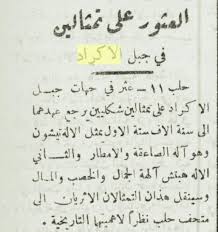 العثور على تمثالين
في جبل الاكراد
حلب ١١ – عثر في جهات جبل
الاكراد على تمثالين شكليين يرجع عهدهما
الى سنة الالف سنة الاول يمثل الاله تيشون
وهو آله الصاعقة والامطار والثاني
الاله هيتش آلهة الجمال والخصب والمال
وسينقل هذان التمثالان الاثريان الى
متحف حلب نظراً لاهميتهما التاريخية .